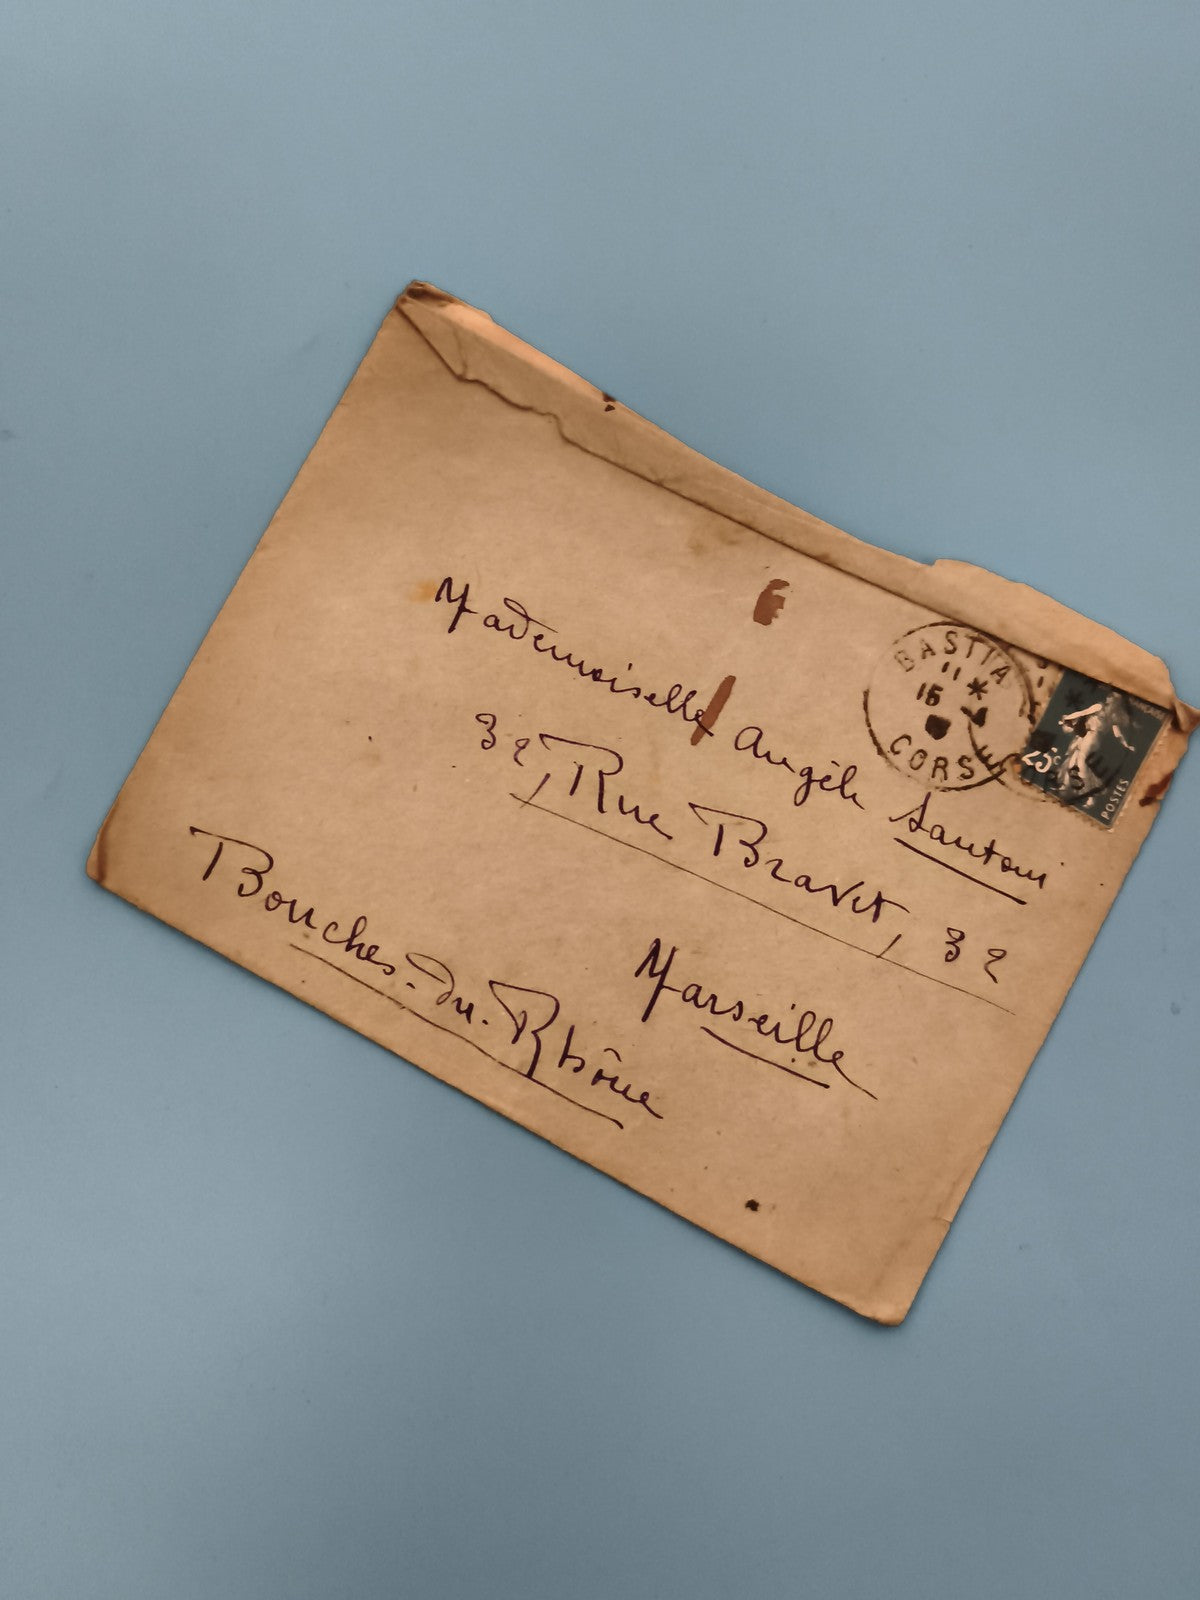 Mademoiselle Angèle Santoni
32, Rue Bravet, 32
Marseille
Bouches-du-Rhône
BASTIA
11 *
15 4
CORSE
25c
POSTES